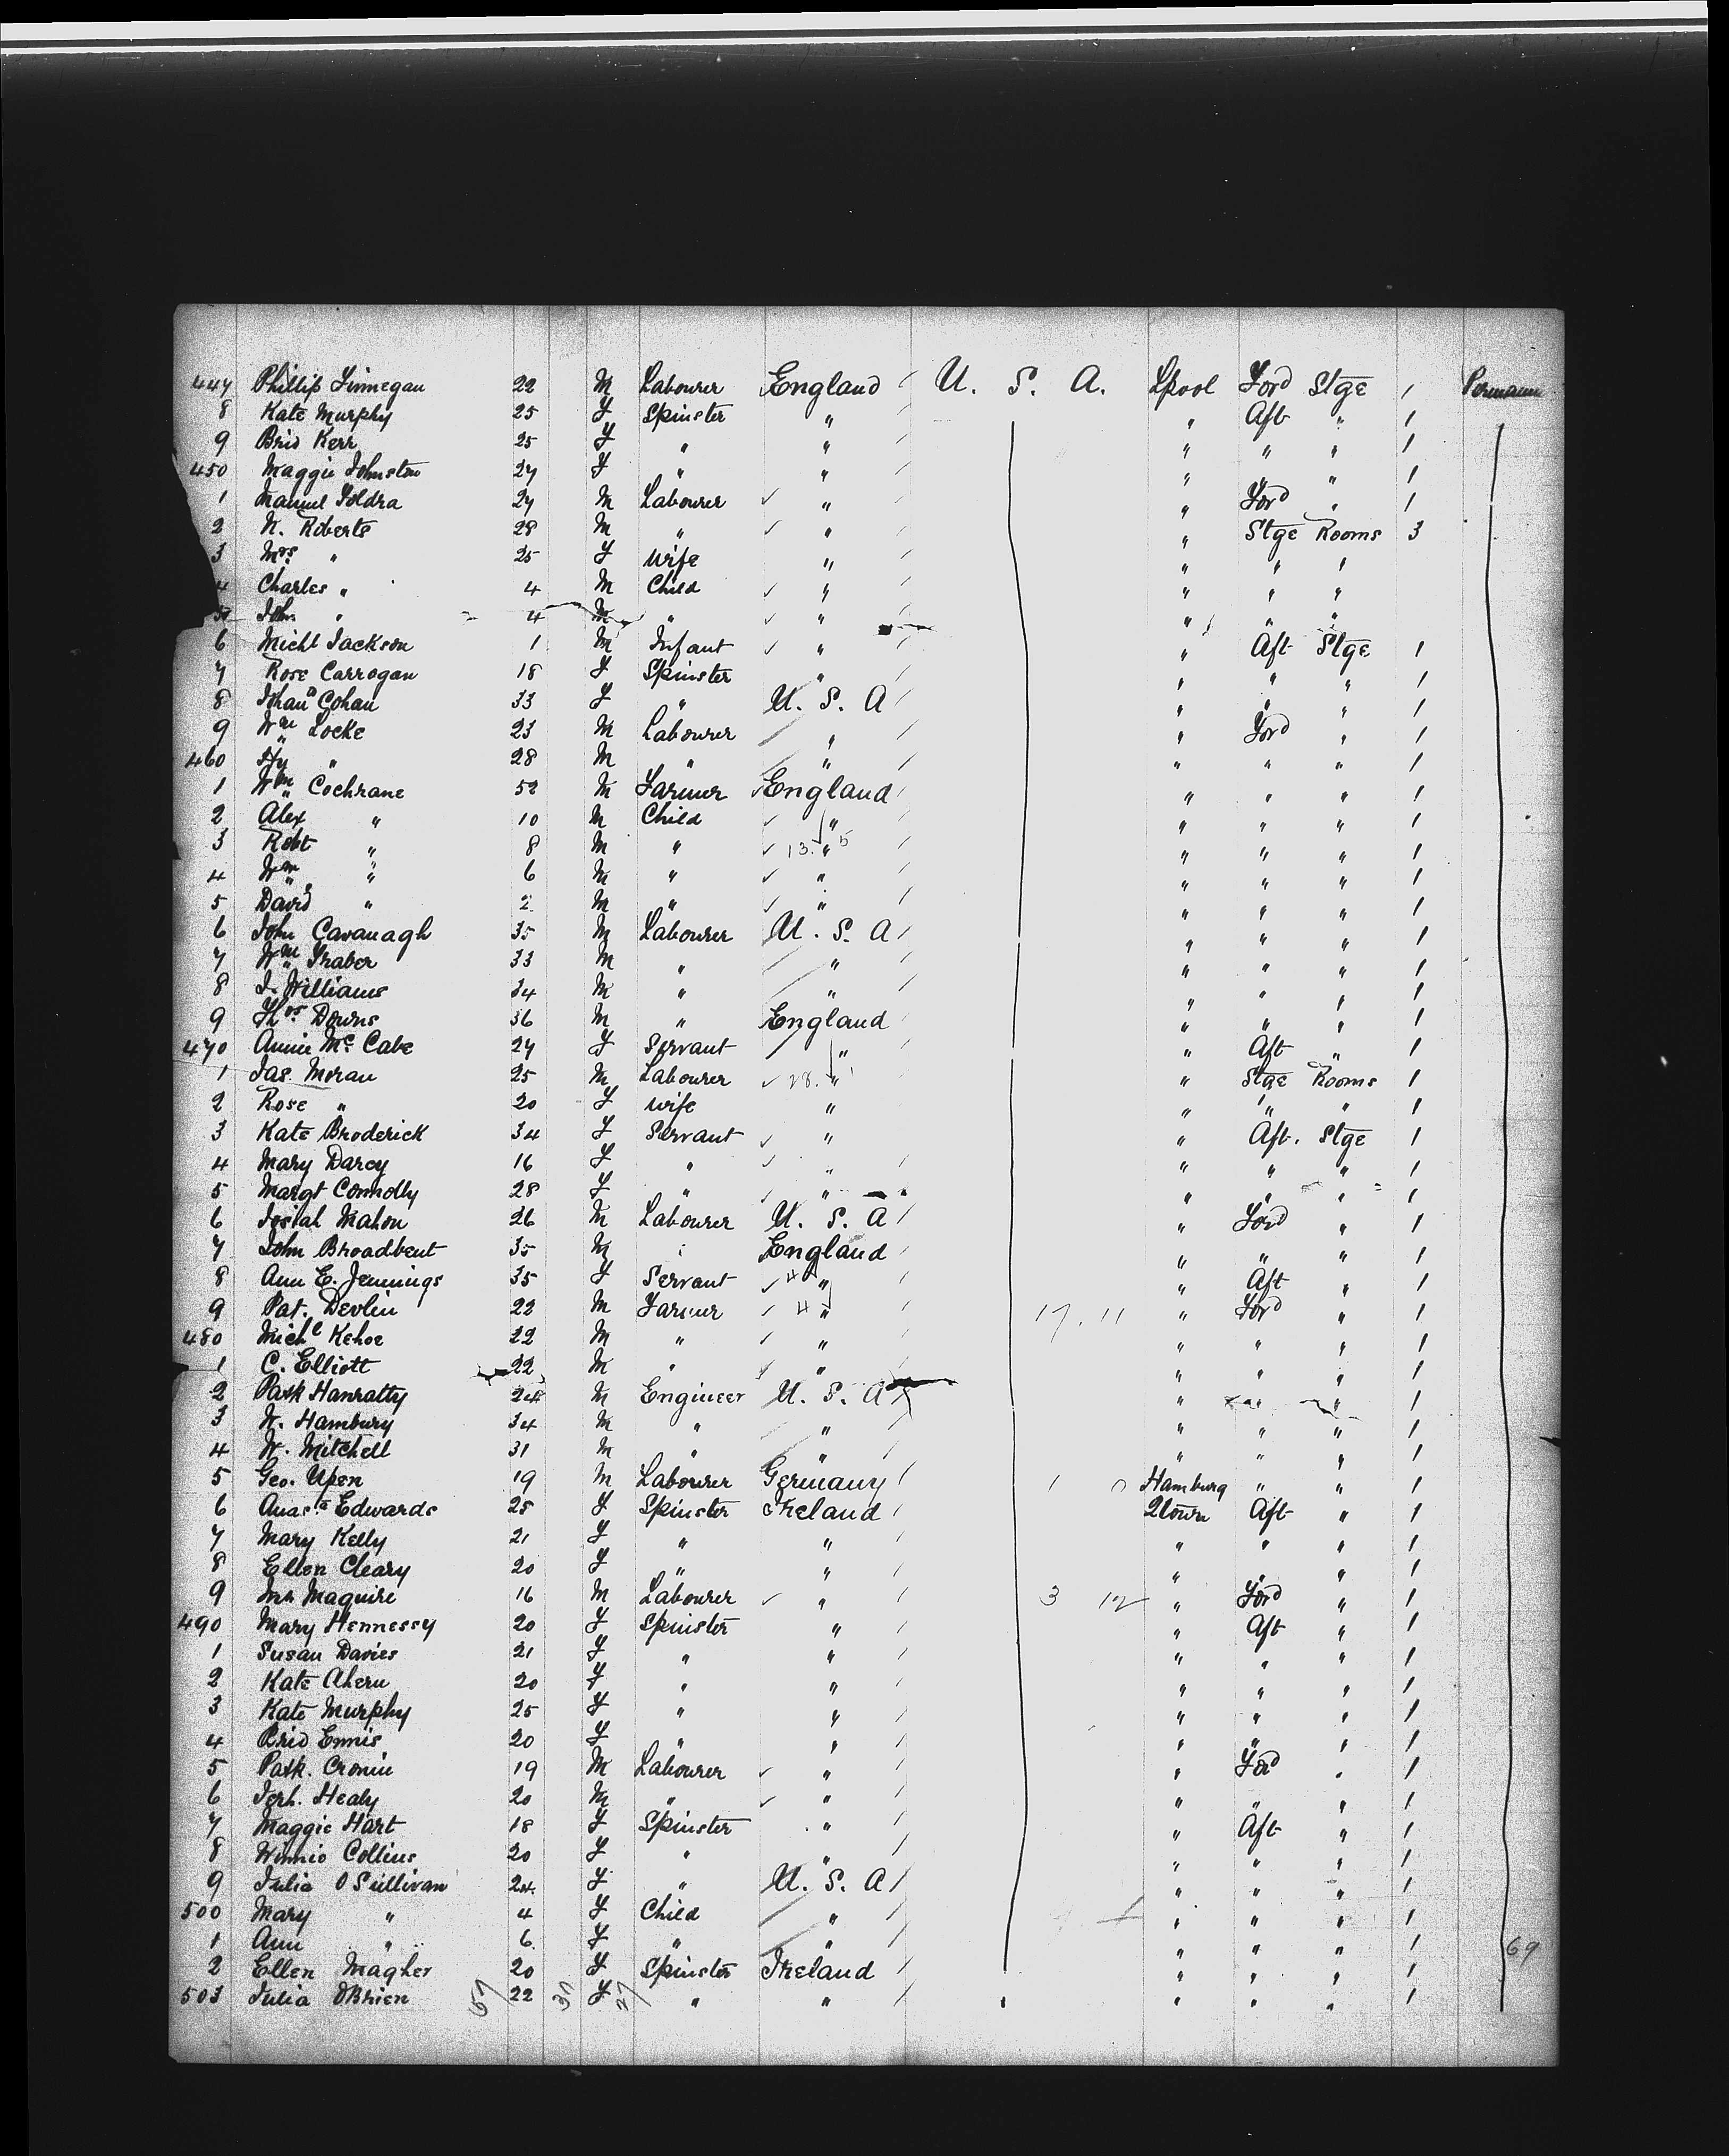 447 Phillip Finnegan 22 M Labourer England U. S. A. Lpool Ford Stge 1
8 Kate Murphy 25 F Spinster " " Aft " 1
9 Brid Kerr 25 F " " " " " 1
450 Maggie Johnston 27 F " " " " " 1
1 Manuel Foldra 27 M Labourer " " Ford " 1
2 N. Roberts 28 M " " " Stge Rooms 3
3 Mrs " 25 F Wife " " " "
4 Charles " 4 M Child " " " "
5 John " 4 M " " " " "
6 Michl Jackson 1 M Infant " " Aft Stge 1
7 Rose Carrogan 18 F Spinster " " " " 1
8 Johana Cohan 33 F " U. S. A " " " 1
9 Wm Locke 23 M Labourer " " Ford " 1
460 Hy " 28 M " " " " " 1
1 Wm Cochrane 52 M Farmer England " " " 1
2 Alex " 10 M Child " " " " 1
3 Robt " 8 M " 13. " 5 " " " 1
4 Wm " 6 M " " " " " 1
5 David " 2 M " " " " " 1
6 John Cavanagh 35 M Labourer U. S. A " " " 1
7 Wm Fraber 33 M " " " " " 1
8 J. Williams 34 M " " " " " 1
9 Thos Downs 36 M " England " " " 1
470 Annie Mc Cabe 27 F Servant " " Aft " 1
1 Jas. Moran 25 M Labourer 28. " 1 " Stge Rooms 1
2 Rose " 20 F Wife " " " " 1
3 Kate Broderick 34 F Servant " " Aft. Stge 1
4 Mary Darcy 16 F " " " " " 1
5 Margt Connolly 28 F " " " " " 1
6 Josiah Mahon 26 M Labourer U. S. A " Ford " 1
7 John Broadbent 35 M " England " " " 1
8 Ann E. Jennings 35 F Servant 4 " " Aft " 1
9 Pat. Devlin 22 M Farmer 4 " 17. 11 " Ford " 1
480 Michl Kehoe 22 M " " " " " 1
1 C. Elliott 22 M " " " " " 1
2 Patk Hanratty 24 M Engineer U. S. A " " " 1
3 W. Hambury 34 M " " " " " 1
4 W. Mitchell 31 M " " " " " 1
5 Geo. Upen 19 M Labourer Germany 1 0 Hamburg " " 1
6 Anasa Edwards 25 F Spinster Ireland Qtown Aft " 1
7 Mary Kelly 21 F " " " " " 1
8 Ellen Cleary 20 F " " " " " 1
9 Maguire 16 M Labourer " 3 12 " Ford " 1
490 Mary Hennessy 20 F Spinster " " Aft " 1
1 Susan Davies 21 F " " " " " 1
2 Kate Ahern 20 F " " " " " 1
3 Kate Murphy 25 F " " " " " 1
4 Brid Ennis 20 F " " " " " 1
5 Patk. Cronin 19 M Labourer " " Ford " 1
6 Jerh. Healy 20 M " " " " " 1
7 Maggie Hart 18 F Spinster " " Aft " 1
8 Winnie Collins 20 F " " " " " 1
9 Julia O Sullivan 24 F " U. S. A " " " 1
500 Mary " 4 F Child " " " " 1
1 Ann " 6 F " " " " " 1 69
2 Ellen Magher 20 F Spinster Ireland " " " 1
503 Julia OBrien 22 F " " " " " " 1